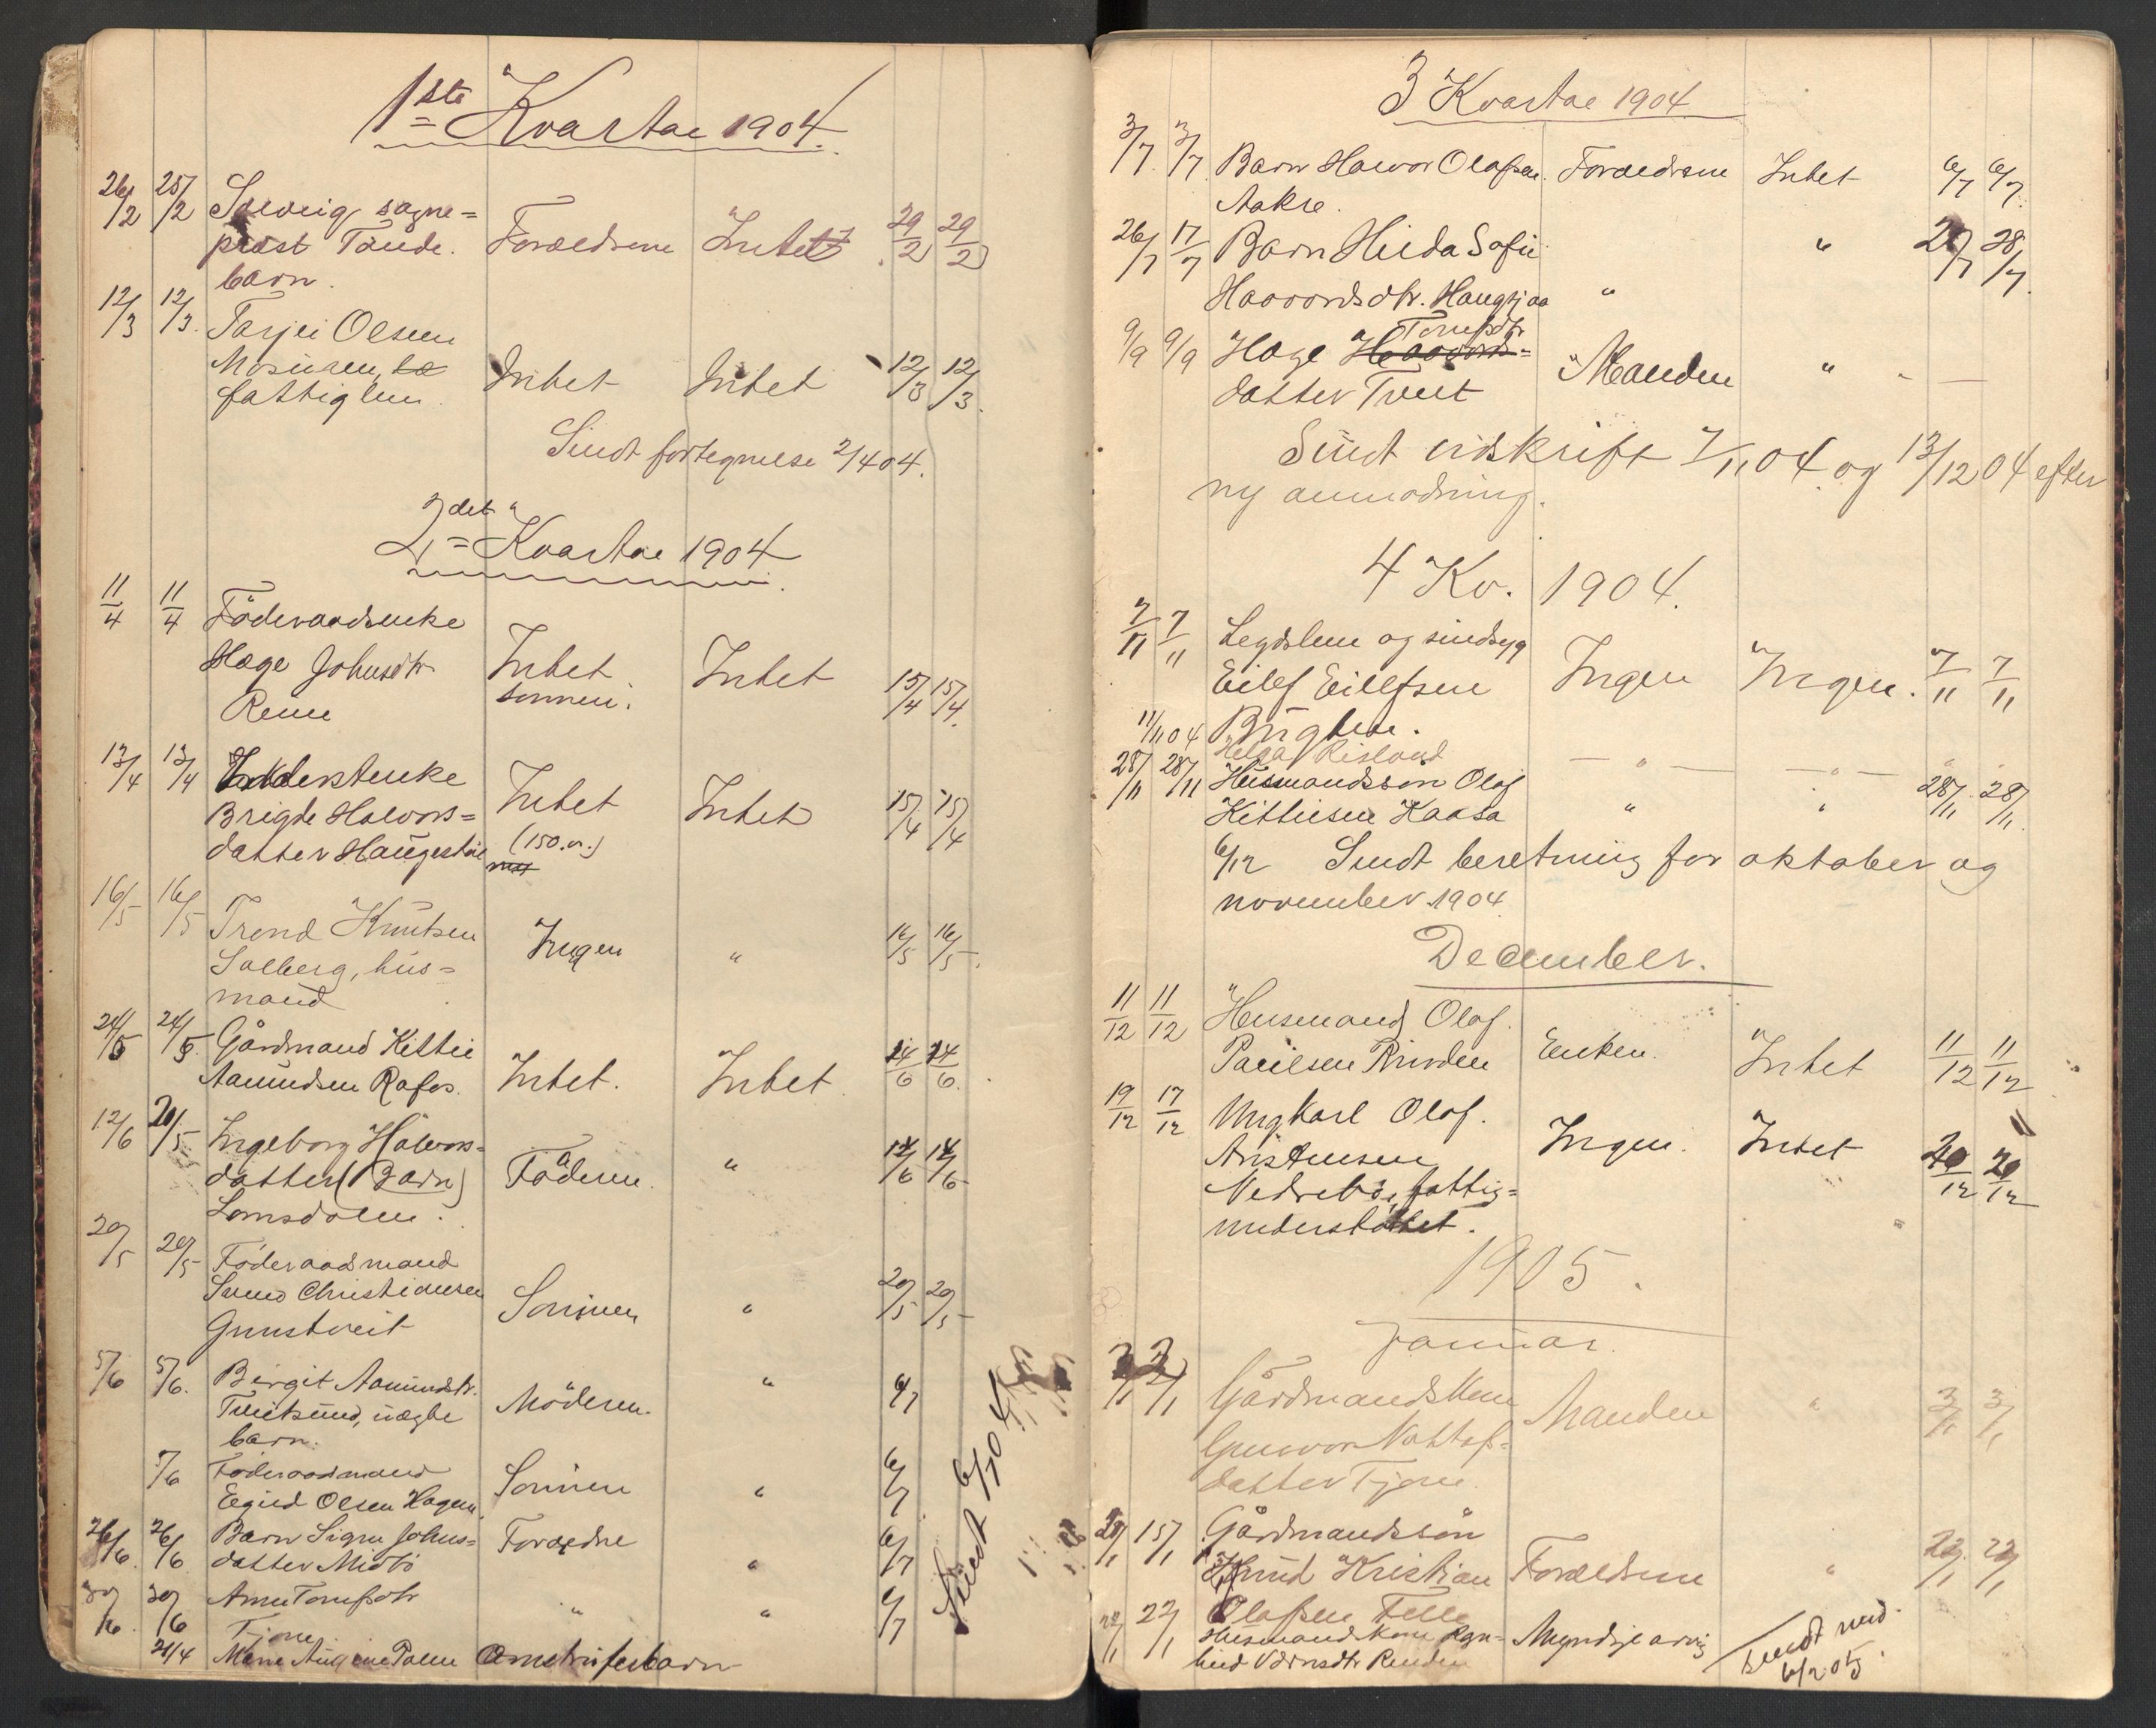 1ste Kvartal 1904.
26/2 25/2 Solveig sogne=
prest Tande. Forældrene Intet 29/2 29/2
barn.
12/3 12/3 Tarjei Olsen
Mosuren,
fattiglem. Intet Intet 12/3 12/3
Sendt fortegnelse 2/4 04.
2det Kvartal 1904
11/4 11/4 Föderaadsenke
Hæge Johnsdtr. Intet Intet 15/4 15/4
sönnen.
13/4 13/4
Brigde Halvors= Intet Intet 15/4 15/4
datter Haugestöl (150. kr.)
16/5 16/5 Trond Knutsen
Solberg, hus= Ingen " 16/5 16/5
mand
24/5 24/5 Gårdmand Kittil
Aamundsen Rafos. Intet. Intet 14/6 14/6
12/6 20/5 Ingeborg Halvors=
datter (Barn) Faderen " 14/6 14/6
Lomsdalen.
20/5 20/5 Föderaadsmand
Svend Christiansen Sönnen " 20/5 20/5
Gunstveit
5/6 5/6 Birgit Aamundstr. " 6/7
Tveitsund, uægte Moderen.
barn.
7/6 Föderaadsmand
Eigild Olsen Hagen Sönnen " 6/7
26/6 26/6 Barn Signe Johns= Forældre " 6/7
datter Midbö
30/6 30/6 Anne Torjusdtr " " 6/7
Tjönn
21/4
Sendt 6/7 04
3 Kvartal 1904
3/7 3/7 Barn Halvor Olafsen Forældrene Intet 6/7 6/7
Aakre.
26/7 17/7 Barn Hilda Sofie " 28/7 28/7
Haavardsdtr. Haugsjaa "
9/9 9/9 Hæge Haavards=
datter Tveit Manden " - —
Sendt udskrift 7/11 04. og 13/12 04 efter
ny anmodning.
4 Kv. 1904.
7/11 7/11 Legdslem og sindsyg
Eilef Eilefsen Ingen Ingen. 7/11 7/11
11/11 04
Helga Risland — " — — " —
28/11 28/11 Husmandssön Olaf 28/11 28/11
Kittilsen Kaasa " "
6/12 Sendt beretning for oktober og
november 1904.
December.
11/12 11/12 Husmand Olaf.
Paulsen Enken. Intet 11/12 11/12
19/12 17/12 Ungkarl Olaf.
Aristensen Ingen. Intet 20/12 20/12
Nedrebö, fattig=
understöttet.
1905.
Januar.
3/1 2/1 Gårdmandskone Manden " 3/1 3/1
Gunvor
datter Tjönn.
15/1 Gårdmandssön
Knud Kristian Forældrene " 22/1 22/1
Olafsen Felle
22/1 22/1 Husmandskone Myndige arving
Sendt ind.
6/2 05.